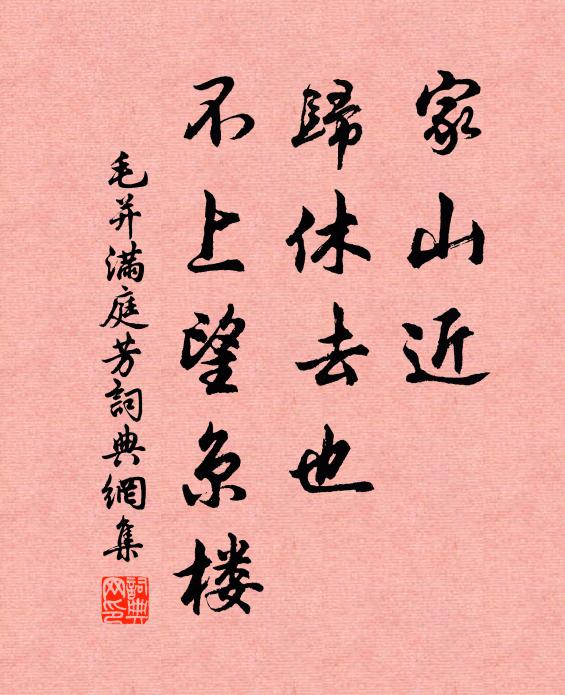 家山近
歸休去也
不上望京楼
毛并满庭芳詞典網集
詞典
网印